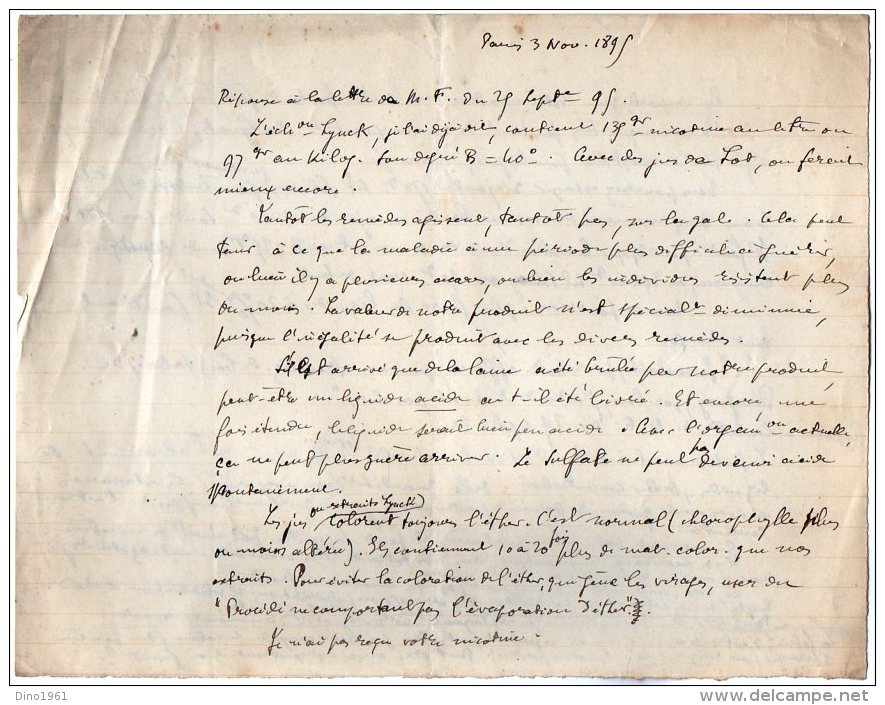 Paris 3 Nov. 1895
Réponse à la lettre de M. F. du 25 Septre 95.
L'échon Lynck, je l'ai déjà dit, contient 135 gr nicotine au litre ou
97 gr au Kilog. Son degré B = 40°. Avec des jus de Lot, on ferait
mieux encore.
Tantôt les remèdes agissent, tantôt pas, sur la gale. Cela peut
tenir à ce que la maladie a une période plus difficile à guérir,
ou bien il y a plusieurs acares, ou bien les individus résistent plus
ou moins. La valeur de notre produit n'est spécialt diminuée,
puisque l'inégalité se produit avec les divers remèdes.
S'il est arrivé que de la laine a été brûlée par notre produit,
peut-être un liquide acide a-t-il été livré. Et encore, une
fois étendu, le liquide serait bien peu acide. Avec l'organion actuelle,
ça ne peut plus guère arriver. Le sulfate ne peut pas devenir acide
spontanément.
Les jus ou extraits Lynck colorent toujours l'éther. C'est normal (chlorophylle plus
ou moins altérée). Ils contiennent 10 à 20 fois plus de mat. color. que nos
extraits. Pour éviter la coloration de l'éther, qui gêne les virages, user du
"Procédé ne comportant pas l'évaporation d'éther".
Je n'ai pas reçu votre nicotine.
Dino1961
www.delcampe.net